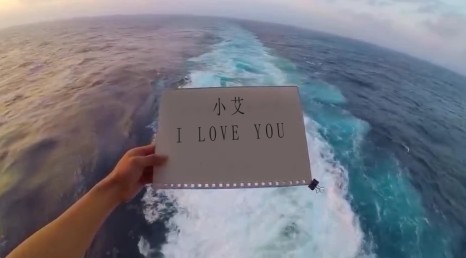 小艾
I LOVE YOU